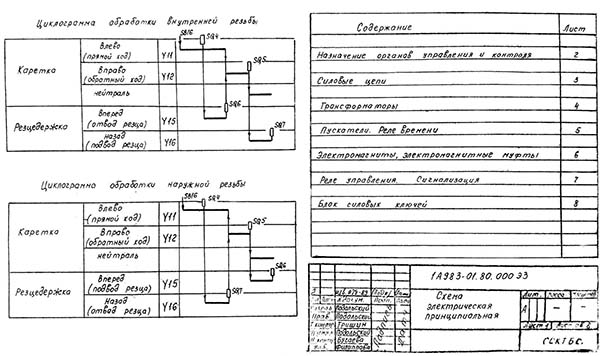 Циклограмма обработки внутренней резьбы
SB16 SQ4
Каретка
Влево
(прямой ход) Y11
SQ5
Вправо
(обратный ход) Y12
нейтраль
SQ6
Резцедержка
Вперед
(отвод резца) Y15
SQ7
Назад
(подвод резца) Y16
Циклограмма обработки наружной резьбы
SB16 SQ4
Каретка
Влево
(прямой ход) Y11
SQ5
Вправо
(обратный ход) Y12
нейтраль
SQ6
Резцедержка
Вперед
(подвод резца) Y15
SQ7
Назад
(отвод резца) Y16
Содержание Лист
Назначение органов управления и контроля 2
Силовые цепи 3
Трансформаторы 4
Пускатели. Реле времени 5
Электромагниты, электромагнитные муфты 6
Реле управления. Сигнализация 7
Блок силовых ключей 8
1А983-01.80.000 Э3
Схема
электрическая
принципиальная
Лит.
А
Подольский
Подольский
Гришин
Подольский
Бугаева
Филиппова
Лист 1
ССКТБС.